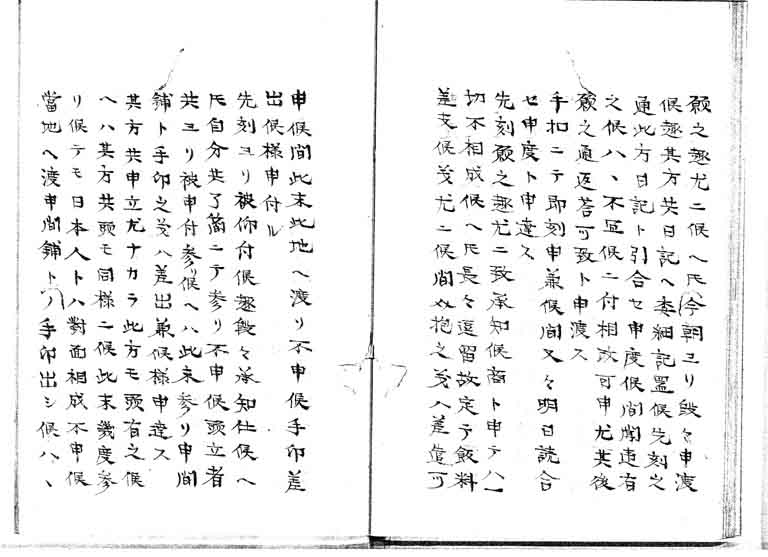 願之趣尤ニ候ヘ圧今朝ヨリ段々申渡
候趣其方共日記ヘ委細記置候先刻之
通此方日記ト引合セ申度候間聞違有
之候ハヽ不宜候ニ付相改可申尤其後
願之通返荅可致ト申渡ス
手扣ニテ即刻申兼候間又々明日読合
セ申度ト申達ス
先刻願之趣尤ニ致承知候商ト申テハ一
切不相成候ヘ圧長々逗留故定テ飯料
差支候義尤ニ候間 抱之義ハ差遣可
申候間此末此地ヘ渡リ不申候手印差
出候様申付ル
先刻ヨリ被仰付候趣段々承知仕候ヘ
圧自分共了簡ニテ参リ不申候頭立者
共ヨリ被申付参リ候ヘハ此末参リ申間
鋪ト手印之義ハ差出兼候様申達ス
其方共申立尤ナカラ此方モ頭有之候
ヘハ其方共頭モ同様ニ候此末幾度参
リ候テモ日本人トハ對面相成不申候
當地ヘ渡申間鋪トノ手印出シ候ハヽ